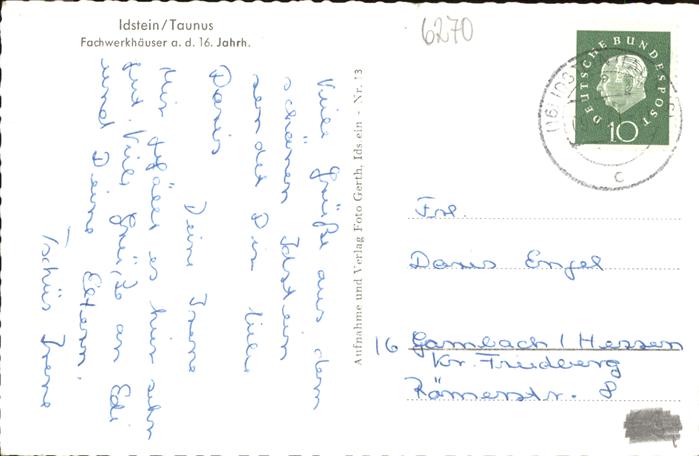 Idstein/Taunus
Fachwerkhäuser a. d. 16. Jahrh.
6270
DEUTSCHE BUNDESPOST
10
(16) IDS
c
Viele Grüße aus dem
schönen Idstein
sendet Dir liebe
Doris
Deine Irene
Mir gefällt es hier sehr
gut. Viele Grüße an Edi
und Deine Eltern.
Tschüs Irene
Aufnahme und Verlag Foto Gerth, Idstein - Nr. 13
Frl.
Doris Engel
16 Gambach / Hessen
Kr. Friedberg
Römerstr. 8